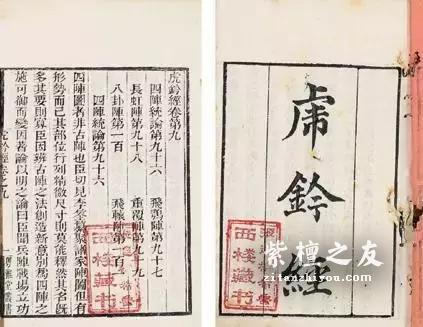 虎鈐經
虎鈐經卷第九
四陣統論第九十六 飛鶚陣第九十七
長虹陣第九十八 重覆陣第九十九
八卦陣第一百 飛轅陣第一百
四陣統論第九十六
四陣圖者非古陣也臣切見李筌纂聚諸家陣圖但有
形勢而已其部位行列稍倣尺寸則莫能釋然其名旣
多其要則寡臣因班古陣之法創造新意別爲四陣之
施可御而變因著論以明之論曰臣聞兵陣戰場立功
虎鈐經卷之九 一 粵雅堂叢書
西棧藏書
西棧藏書
紫檀之友
zitanzhiyou.com